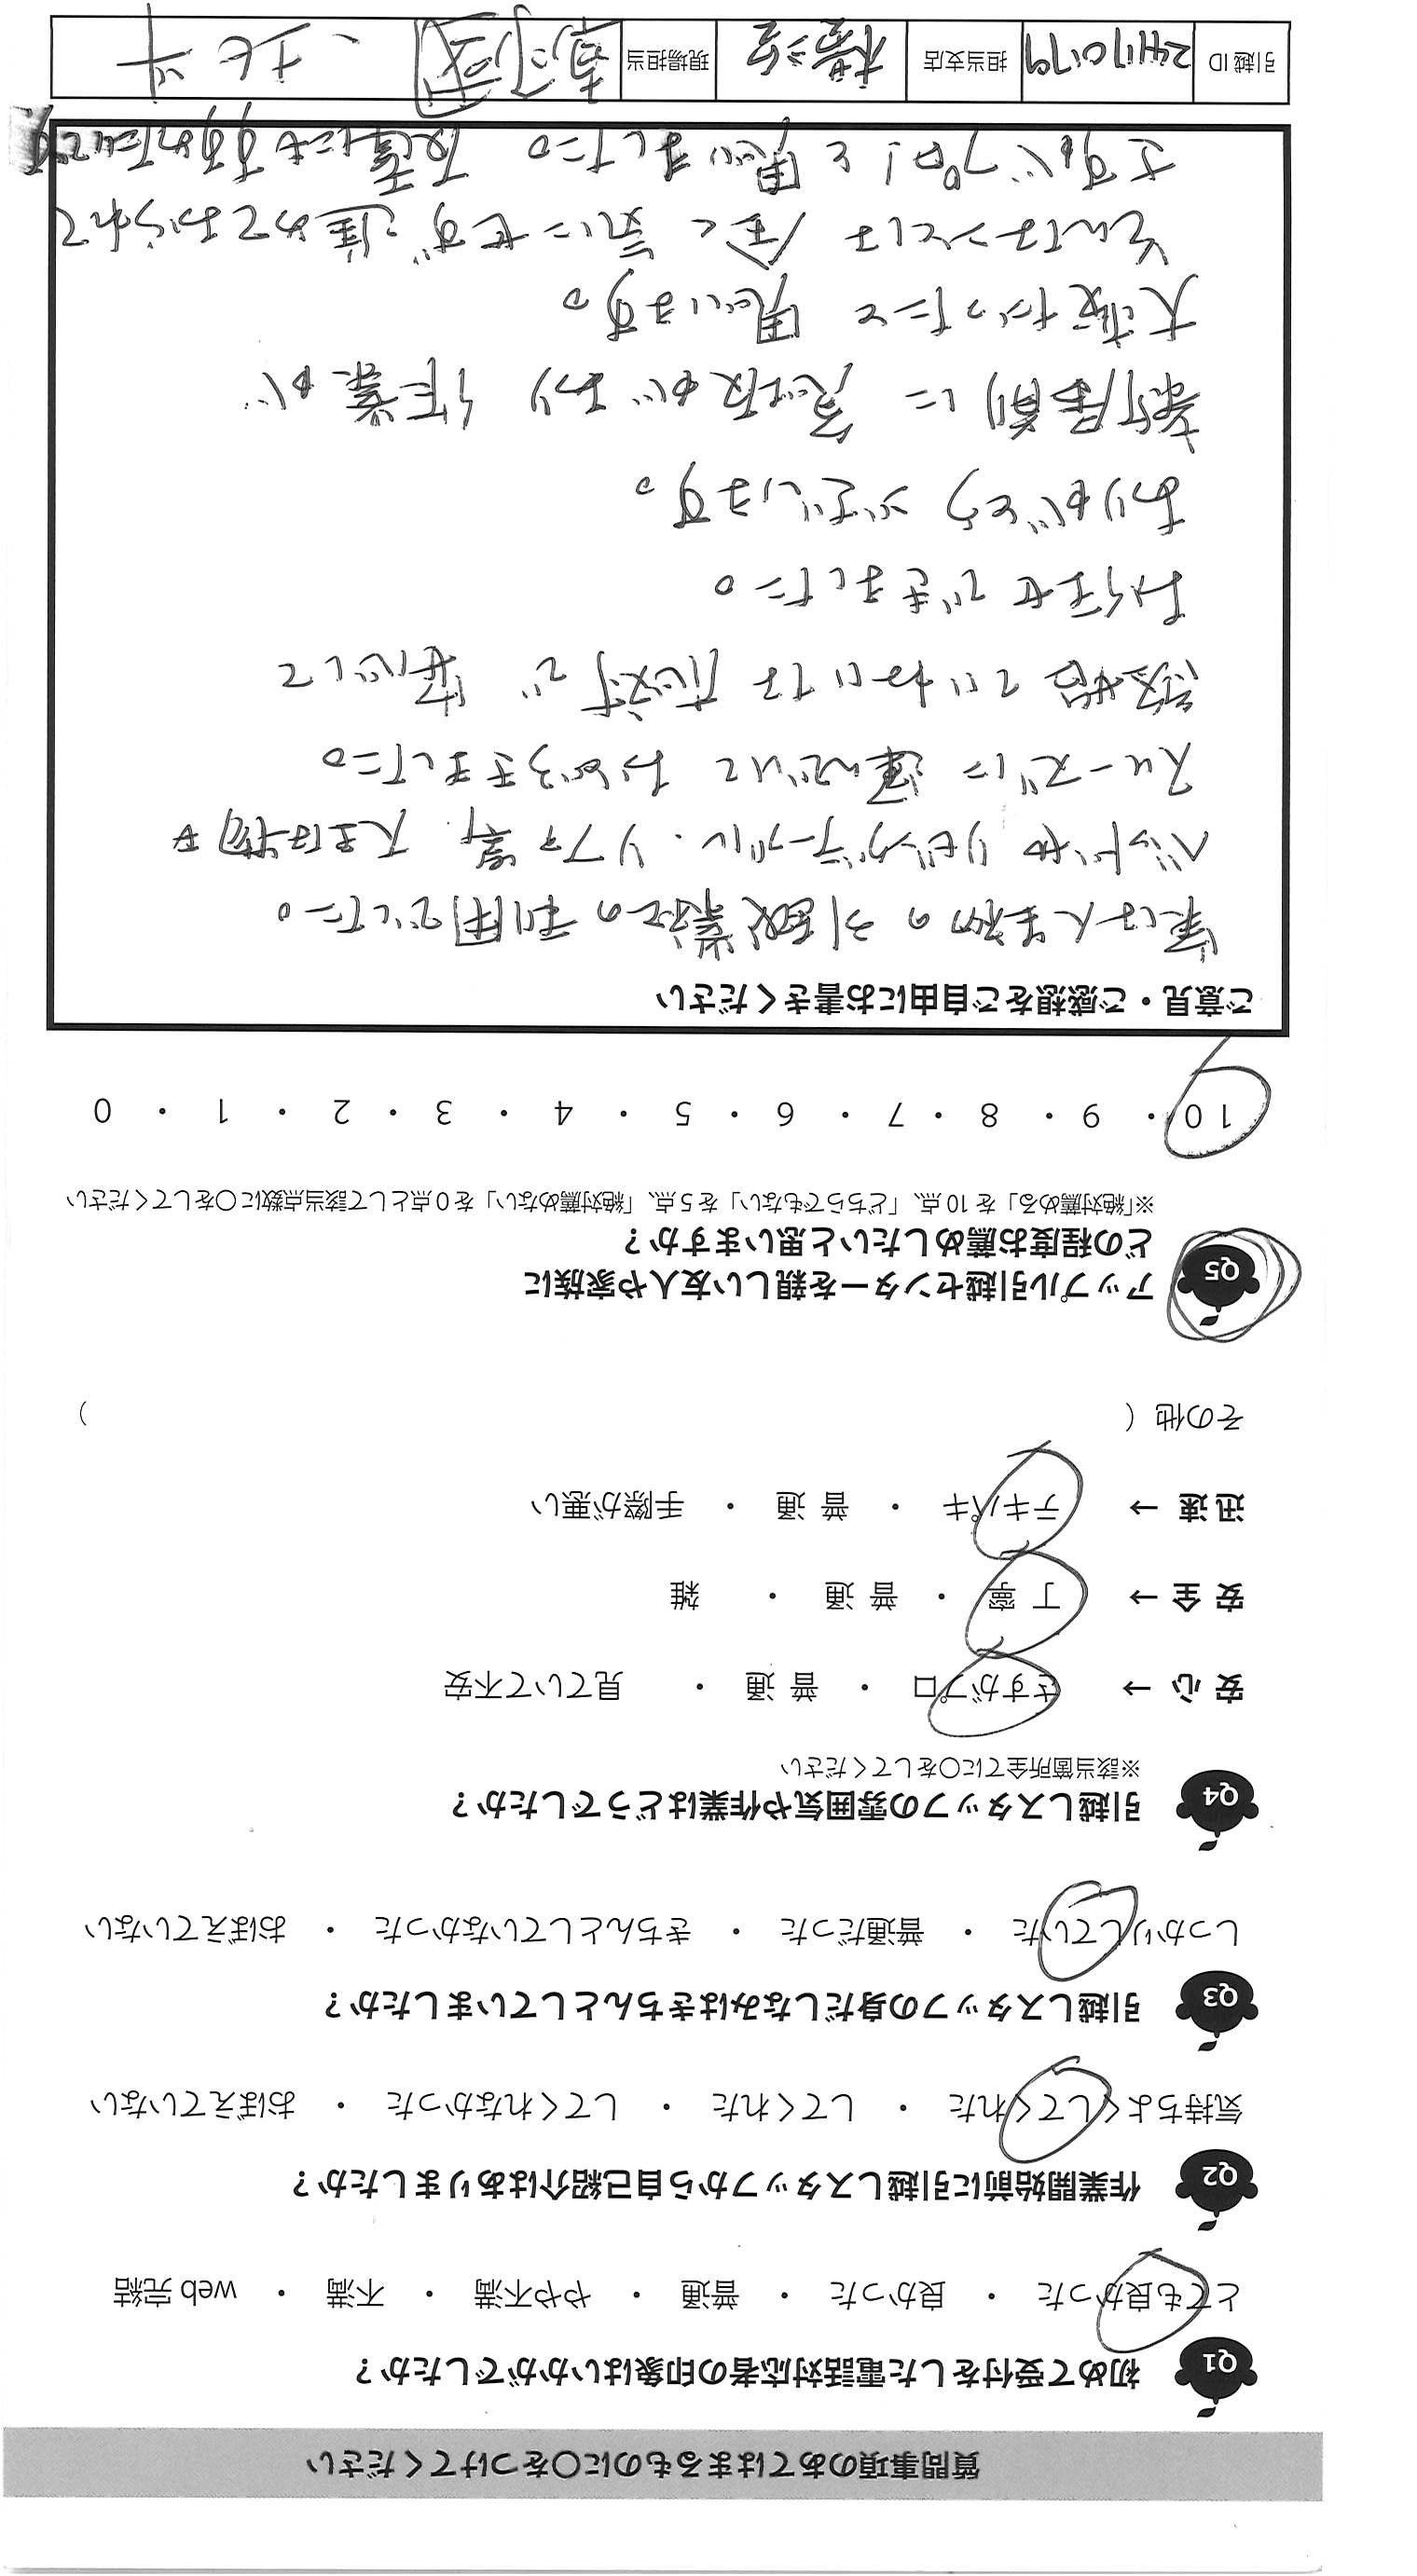 質問事項のあてはまるものに〇をつけてください
Q1 初めて受付をした電話対応者の印象はいかがでしたか？
とても良かった ・ 良かった ・ 普通 ・ やや不満 ・ 不満 ・ web 完結
Q2 作業開始前に引越しスタッフから自己紹介はありましたか？
気持ちよくしてくれた ・ してくれた ・ してくれなかった ・ おぼえていない
Q3 引越しスタッフの身だしなみはきちんとしていましたか？
しっかりしていた ・ 普通だった ・ きちんとしていなかった ・ おぼえていない
Q4 引越しスタッフの雰囲気や作業はどうでしたか？
※該当箇所全てに〇をしてください
安心 → さすがプロ ・ 普通 ・ 見ていて不安
安全 → 丁寧 ・ 普通 ・ 雑
迅速 → テキパキ ・ 普通 ・ 手際が悪い
その他（ ）
Q5 アップル引越センターを親しい友人や家族に
どの程度お薦めしたいと思いますか？
※「絶対薦める」を10点、「どちらでもない」を5点、「絶対薦めない」を0点として該当点数に〇をしてください
10 ・ 9 ・ 8 ・ 7 ・ 6 ・ 5 ・ 4 ・ 3 ・ 2 ・ 1 ・ 0
ご意見・ご感想をご自由にお書きください
実は人生初の引越業社の利用でした。
ベッドやリビングテーブル・ソファ等 大きな物も
スムーズに運んでいて おどろきました。
終始ていねいな応対で 安心して
お任せできました。
ありがとうございます。
新居前に急坂があり 作業が
大変だったと思います。
そんなことは全く気にせず進めておられて
さすがプロ！と思いました。友達にもすすめたいです
引越ID 24117079 担当支店 横浜 現場担当